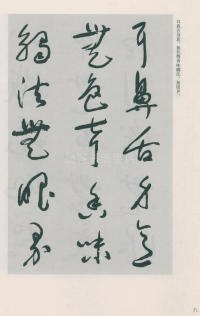 耳鼻舌身意，無色聲香味觸法，無眼界，
耳鼻舌身意
無色聲香味
觸法無眼界
八